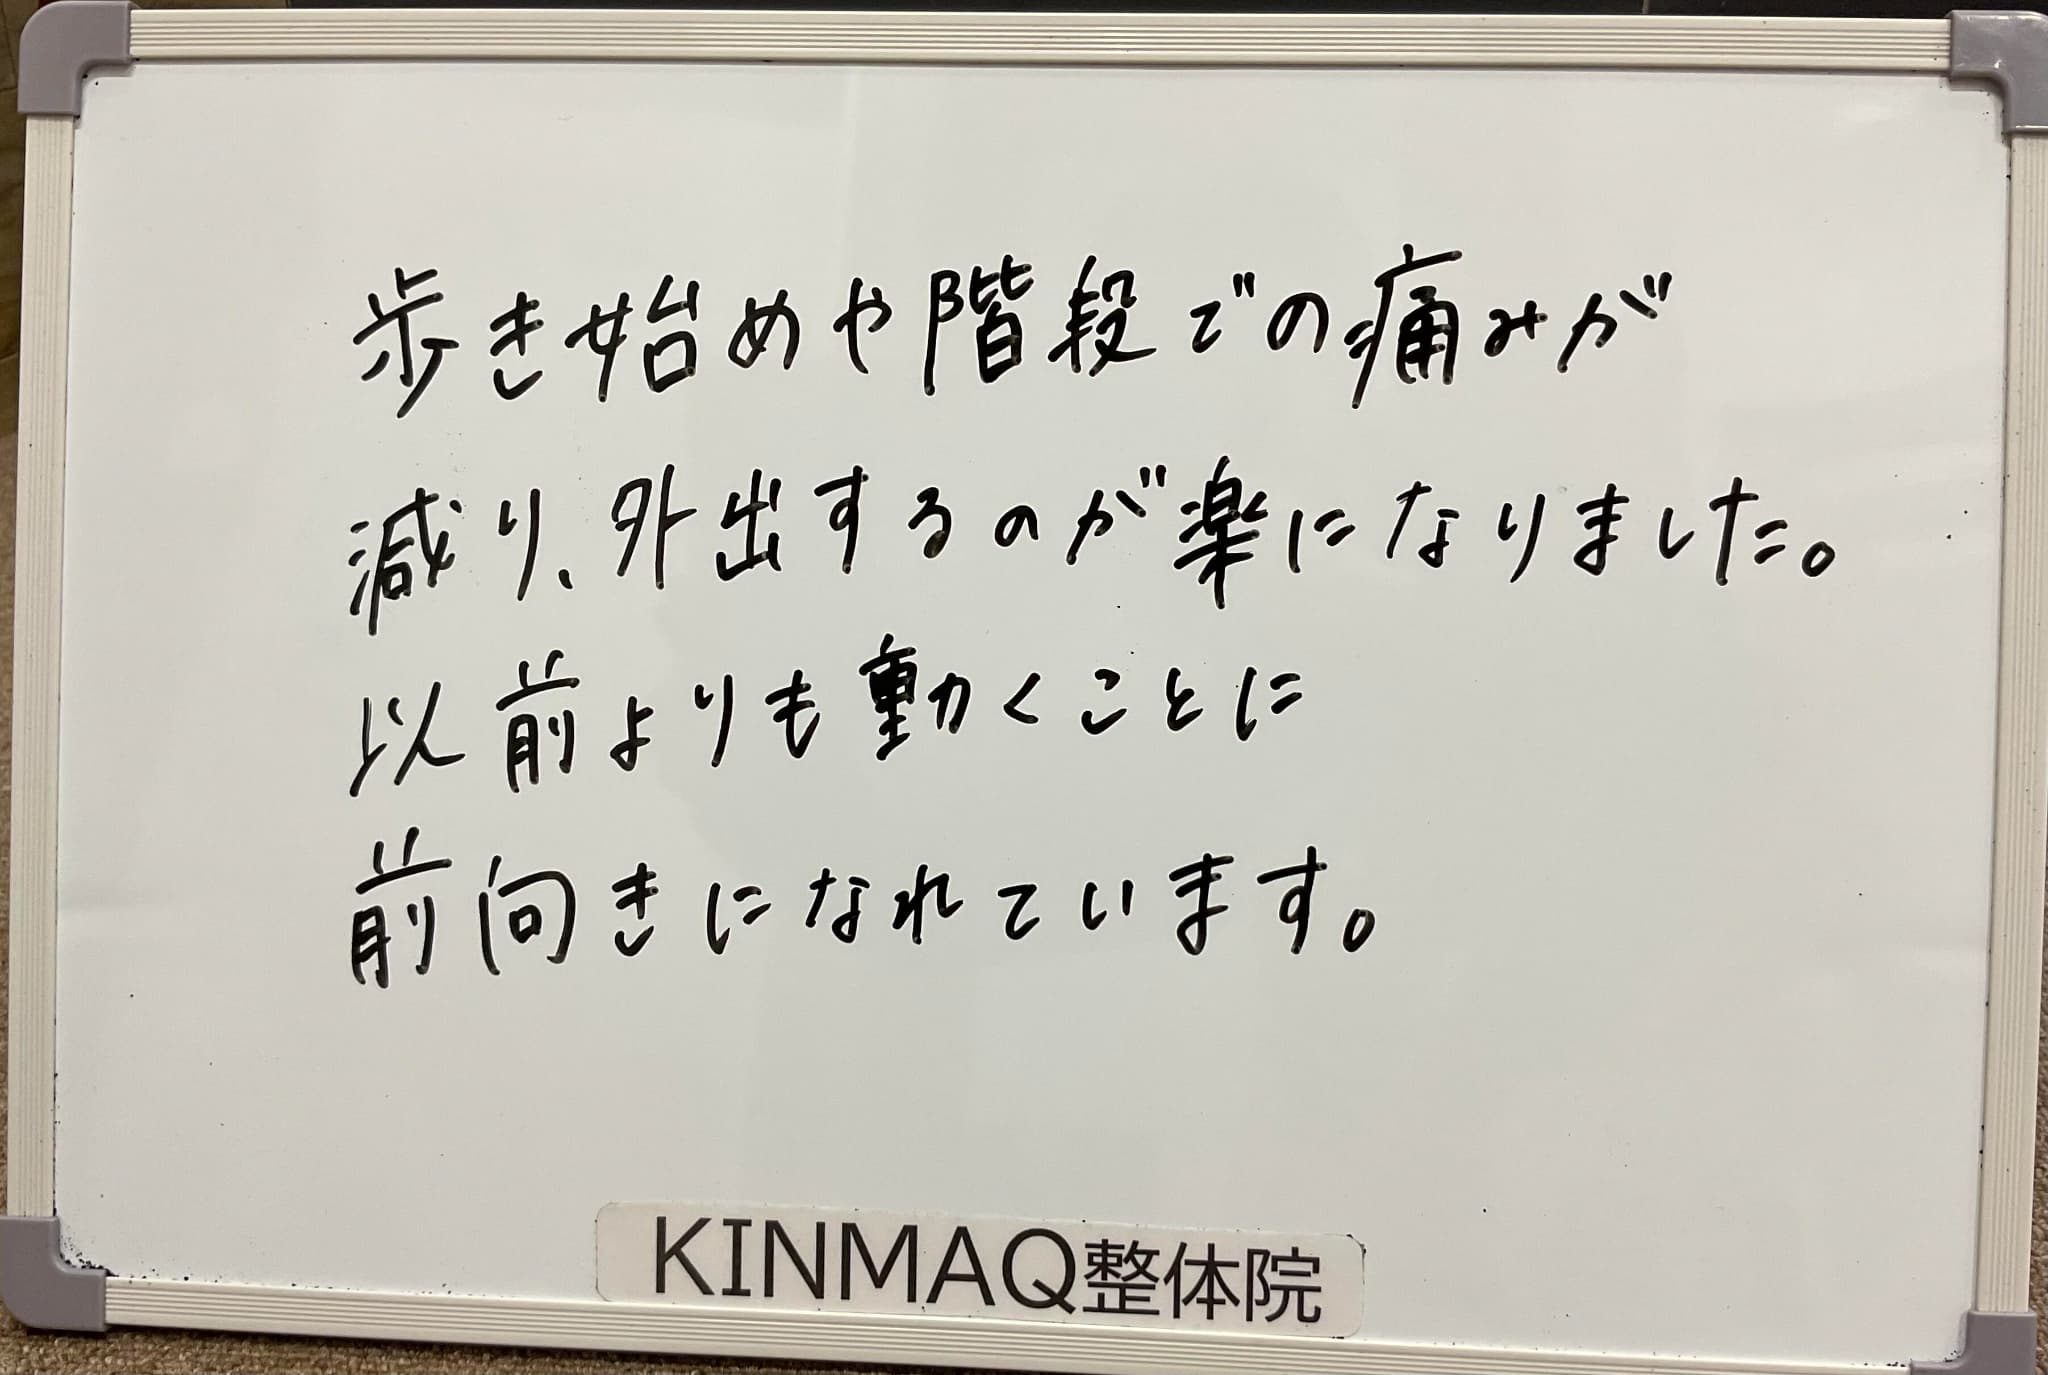 歩き始めや階段での痛みが
減り、外出するのが楽になりました。
以前よりも動くことに
前向きになれています。
KINMAQ整体院